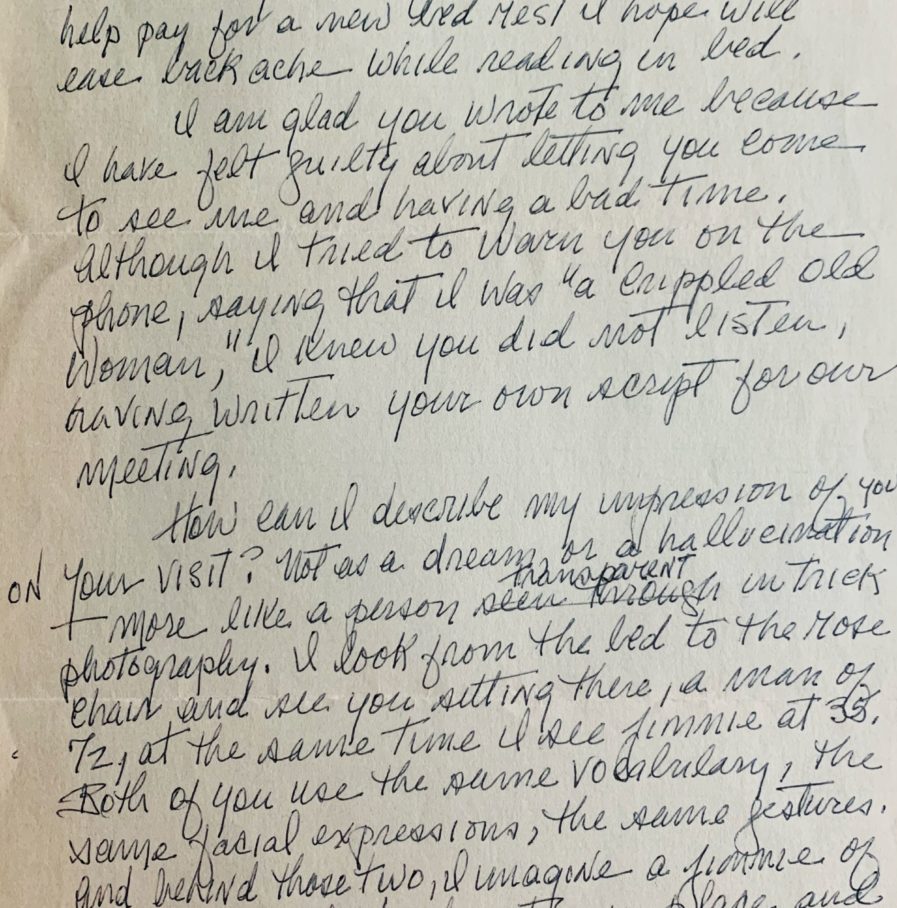 help pay for a new bed rest I hope will
ease back ache while reading in bed.
I am glad you wrote to me because
I have felt guilty about letting you come
to see me and having a bad time.
Although I tried to warn you on the
phone, saying that I was "a crippled old
woman," I knew you did not listen,
having written your own script for our
meeting.
How can I describe my impression of you
ON your visit? Not as a dream or a hallucination
transparent
– more like a person seen through in trick
photography. I look from the bed to the rose
chair and see you sitting there, a man of
72, at the same time I see Jimmie at 33.
Both of you use the same vocabulary, the
same facial expressions, the same gestures.
And behind those two, I imagine a Jimmie of
place and